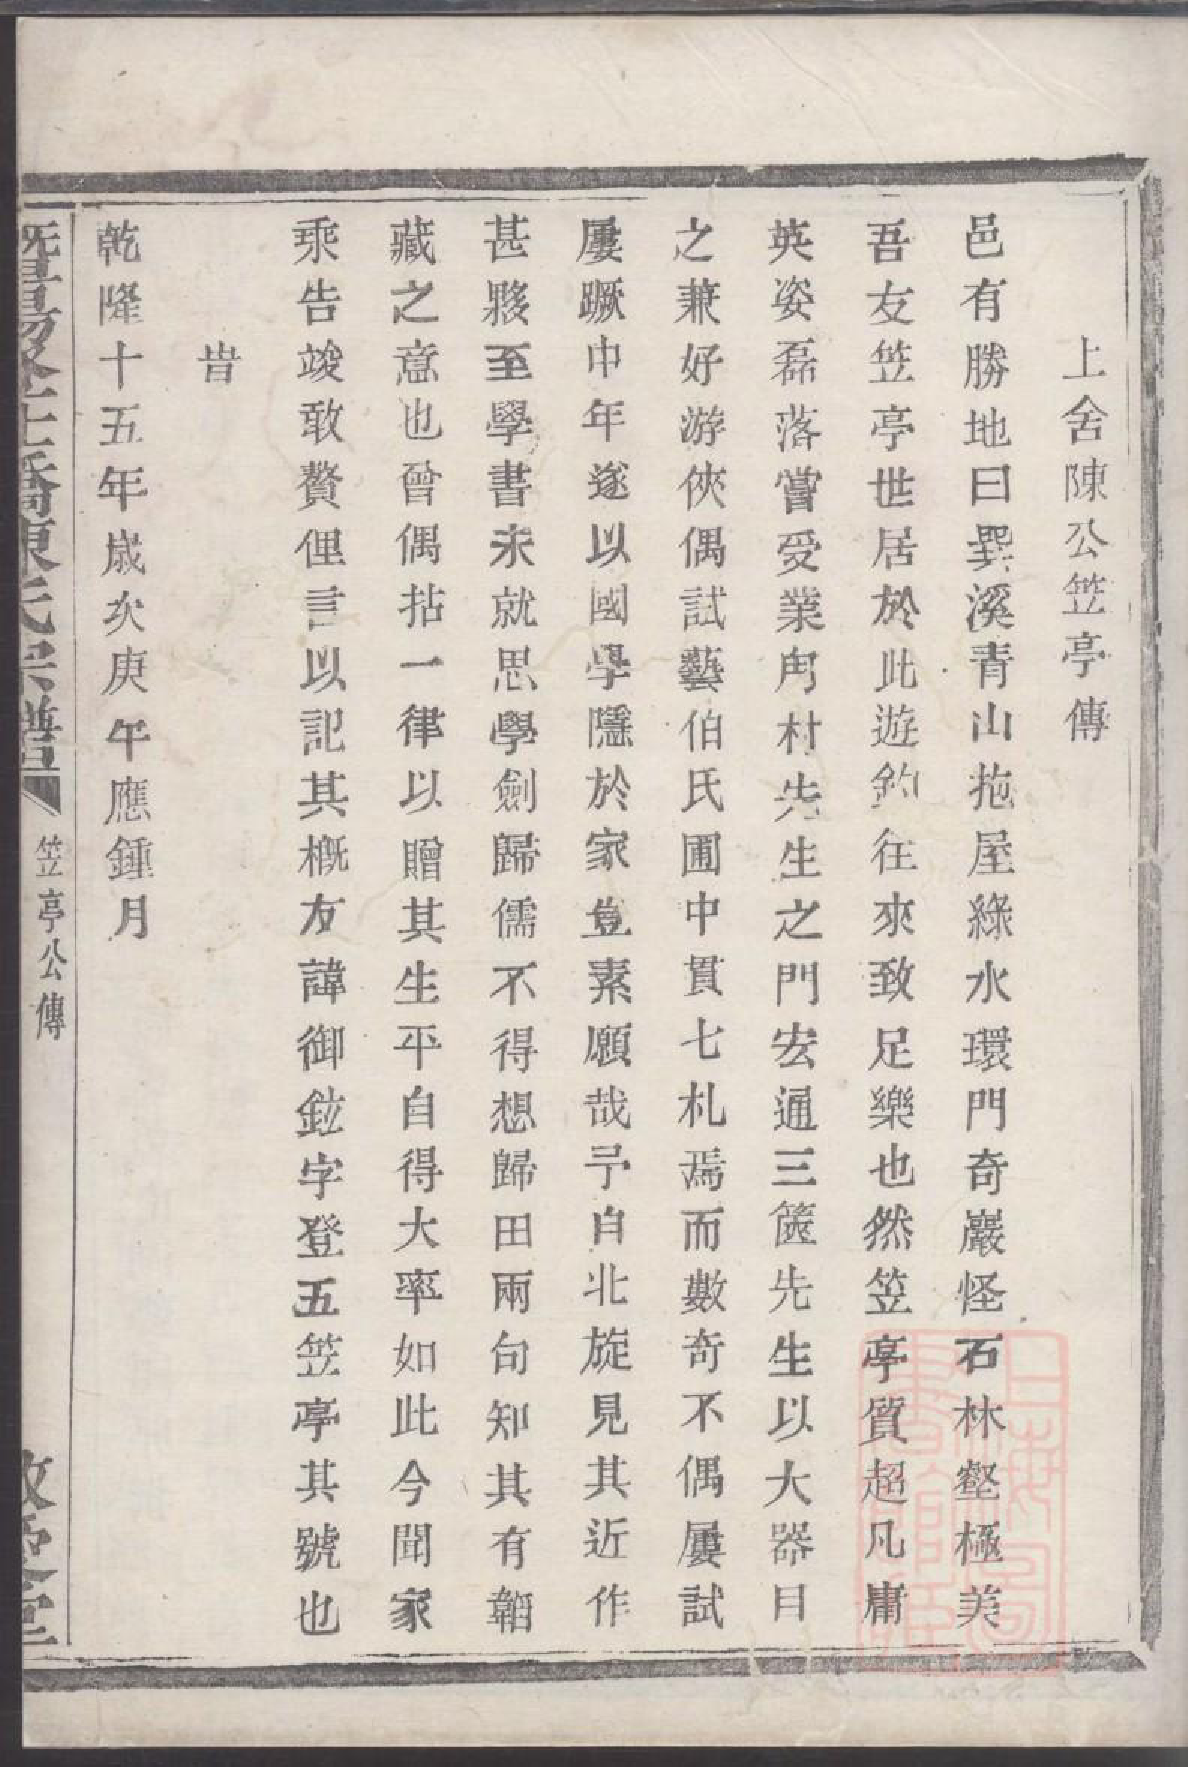 上舍陳公笠亭傳
邑有勝地曰巽溪青山拖屋綠水環門奇巖怪石林壑極美
吾友笠亭世居於此遊釣往來致足樂也然笠亭質超凡庸
英姿磊落嘗受業內村先生之門宏通三篋先生以大器目
之兼好游俠偶試藝伯氏圃中貫七札焉而數奇不偶屢試
屢蹶中年遂以國學隱於家豈素願哉予自北旋見其近作
甚夥至學書未就思學劍歸儒不得想歸田兩句知其有韜
藏之意也曾偶拈一律以贈其生平自得大率如此今聞家
乘告竣敢贅俚言以記其概友諱御鉝字登五笠亭其號也
旹
乾隆十五年歲次庚午應鍾月
暨陽 橋陳氏宗譜
笠亭公傳
堂